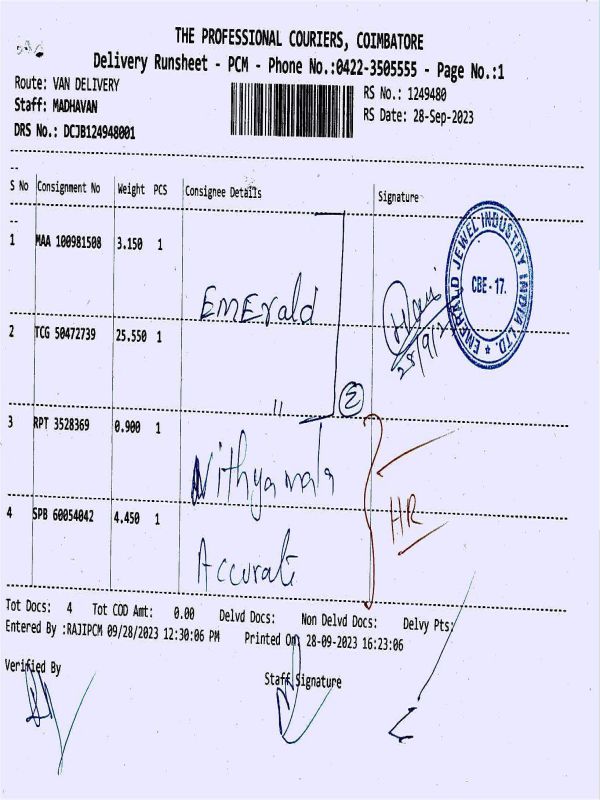 THE PROFESSIONAL COURIERS, COIMBATORE
Delivery Runsheet - PCM - Phone No.:0422-3505555 - Page No.:1
Route: VAN DELIVERY
RS No.: 1249480
Staff: MADHAVAN
RS Date: 28-Sep-2023
DRS No.: DCJB124948001
S No Consignment No Weight PCS Consignee Details Signature
1 MAA 100981508 3.150 1
EMErald
EMERALD JEWEL INDUSTRY INDIA LTD.
CBE - 17.
2 TCG 50472739 25.550 1
"
3 RPT 3528369 0.900 1
Nithyamala
HR
4 SPB 60054042 4.450 1
Accurate
Tot Docs: 4 Tot COD Amt: 0.00 Delvd Docs: Non Delvd Docs: Delvy Pts:
Entered By :RAJIPCM 09/28/2023 12:30:06 PM Printed On 28-09-2023 16:23:06
Verified By
Staff Signature